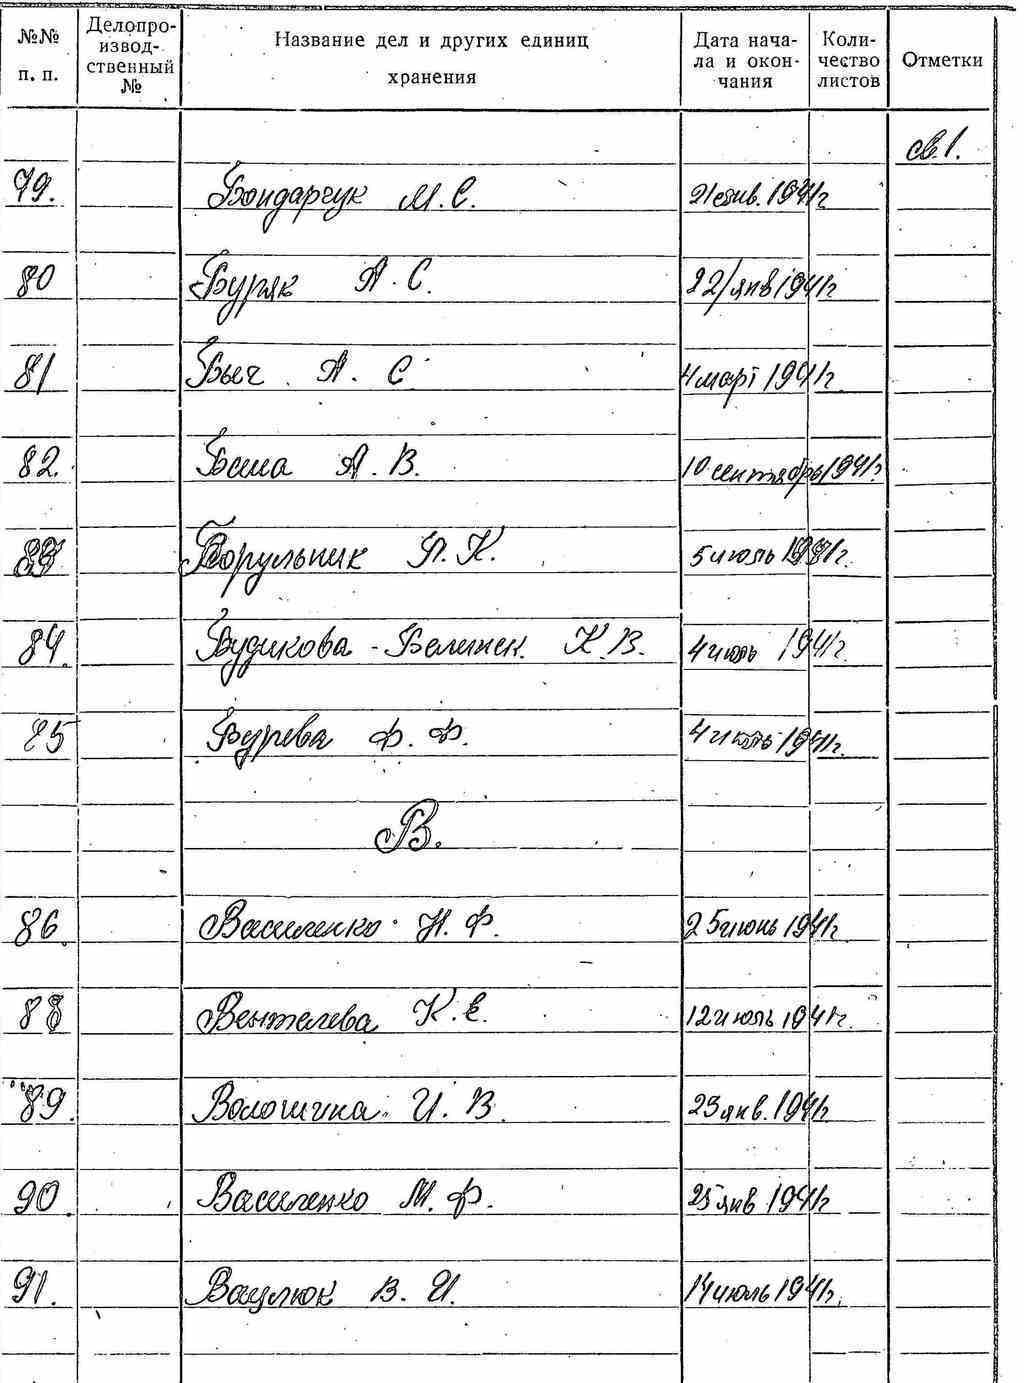 №№ п. п.
Делопроизводственный №
Название дел и других единиц хранения
Дата начала и окончания
Количество листов
Отметки
св. 1.
79. Бондарчук М. С. 21 янв. 1941г
80 Буряк А. С. 22/янв 1941г
81 Быч А. С. 4 март 1941г.
82. А. В. 10 сентябрь 1941г.
83 П. К. 5 июль 1941г.
84. К. В. 4 июль 1941г.
85 Ф. Ф. 4 июль 1941г.
В.
86. Василенко Н. Ф. 25 июнь 1941г.
88 Вентелева К. Е. 12 июль 1941г.
89. Волошина И. В. 23 янв. 1941г.
90. Василенко М. Ф. 25 янв 1941г
91. Вацлюк В. И. 14 июль 1941г.